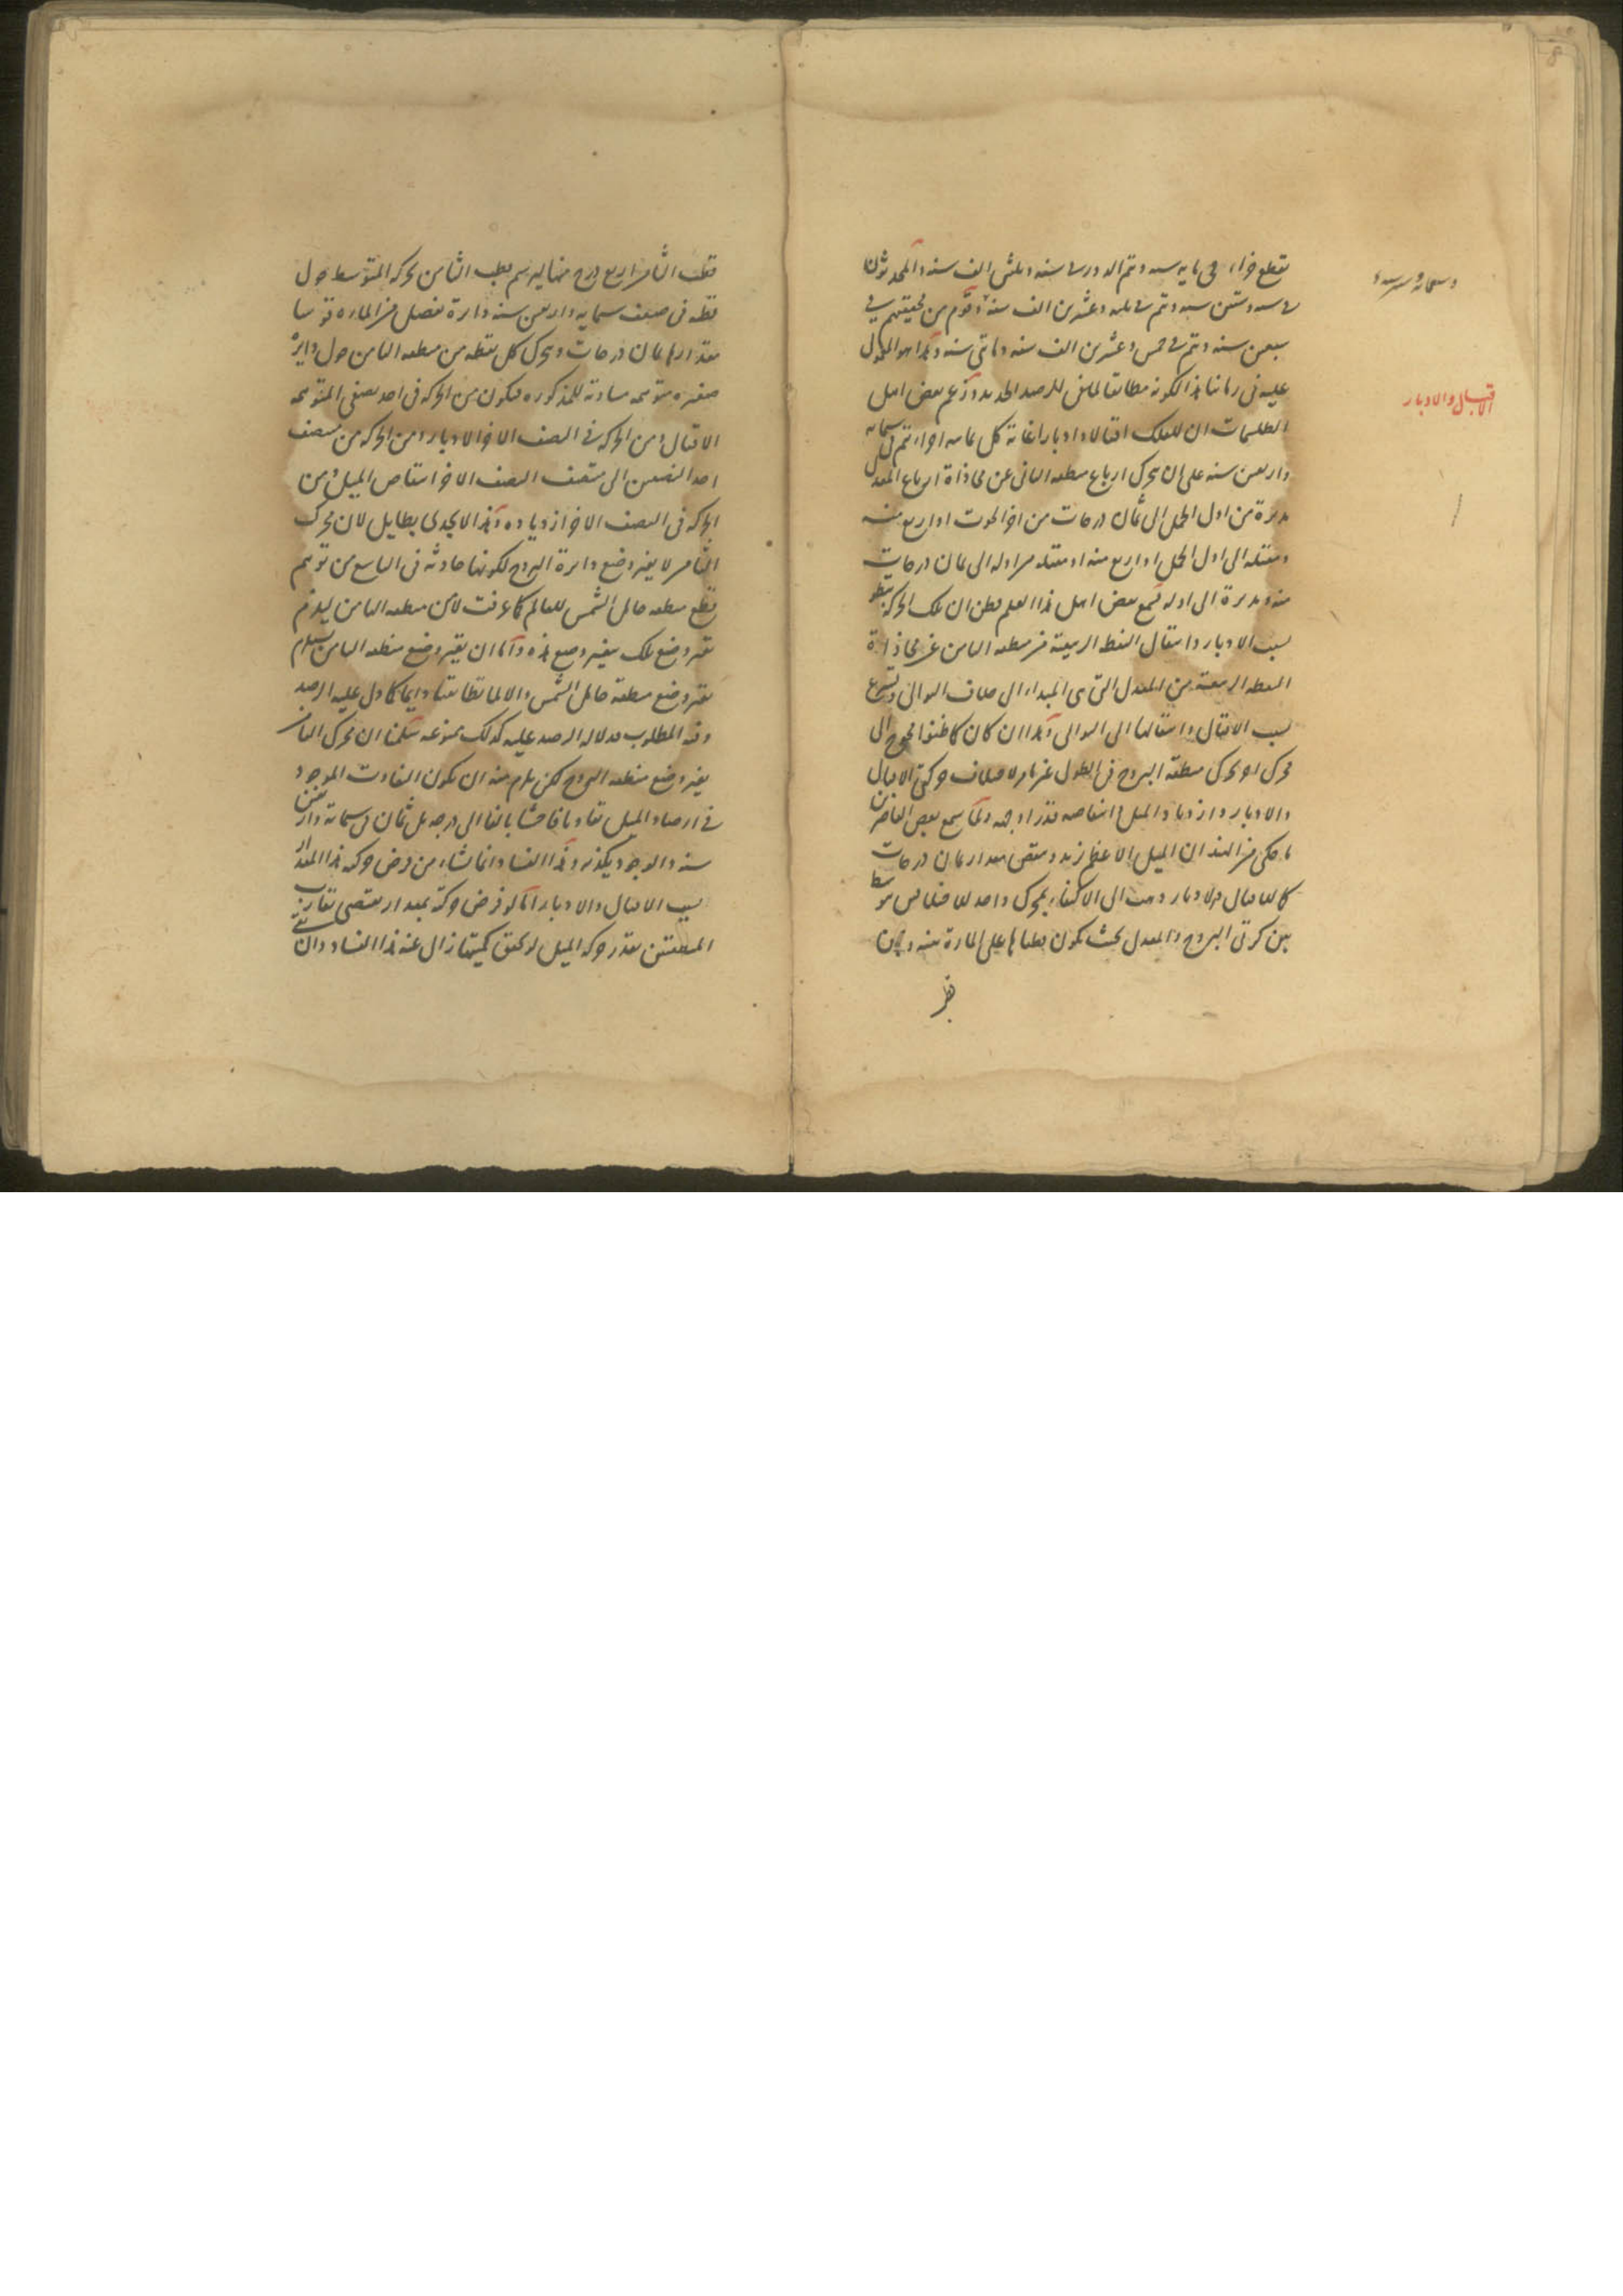 يقطع جزاء فى مايه سنه و تتم الدور فى سته و ثلثين الف سنه و المحدثون
فى ست و ستين سنه و تتم فى ثلثه و عشرين الف سنه و قوم من محققيهم فى
سبعين سنه و تتم فى خمس و عشرين الف سنه و مائتى سنه و هذا هو المعول
عليه فى زماننا هذا لكونه مطابقا للرصد الجديد و زعم بعض اهل
الطلسمات ان للفلك اقبالا و ادبارا غاية كل ثمانيه اجزاء تتم فى ستمايه
و اربعين سنه على ان يتحرك ارباع منطقه الثانى عن محاذاة ارباع المعدل
مدبرة من اول الحمل الى ثمان درجات من اخر الحوت او اربع منه
و مقبله الى اول الحمل او اربع منه او مقبله من اوله الى ثمان درجات
منه و مدبرة الى اوله فسمع بعض اهل هذا العلم فظن ان تلك الحركة تبطو
بسبب الادبار و انتقال النقط الربيعية من منطقه الثامن عن محاذاة
النقطه الربيعية من المعدل التى هى المبداء الى خلاف التوالى و تسرع
بسبب الاقبال و انتقالها الى التوالى و هذا ان كان كما ظنوا محوج الى
محرك اخر يحرك منطقة البروج فى الطول لاختلاف حركتى الاقبال
و الادبار و ازدياد الميل و انتقاصه و لما سمع بعض
ما حكى من الهند ان الميل الاعظم يزيد و ينقص بمقدار ثمان درجات
كالاقبال و الادبار ذهب الى الاكتفاء بمحرك واحد متوسط
بين كرتى البروج و المعدل بحيث يكون قطباها على المارة بينه و بين
الاقبال و الادبار
قطب الثامن اربع درج منها ليرسم قطب الثامن بحركة المتوسط حول
قطبه فى ضعف ستمايه و اربعين سنه دايرة تفصل من الماره قوسا
مقدارها ثمان درجات و يتحرك كل نقطه من منطقه الثامن حول دايرة
صغيره متوهمه مساوية للمذكوره فيكون من الحركه فى احد نصفى المتوهمه
الاقبال و من الحركه فى النصف الاخر الادبار و من الحركه من منتصف
احد النصفين الى منتصف النصف الاخر انتقاص الميل و من
الحركه فى النصف الاخر ازدياده و هذا لا يجدى بطايل لان محرك
الثامن لا يغير وضع دايرة البروج لكونها حادثه فى التاسع من توهم
قطع منطقه حامل الشمس للعالم كما عرفت لا من منطقه الثامن ليلزم
تغير وضع تلك بتغير وضع هذه و اما ان يغير وضع منطقه الثامن يستلزم
تغير وضع منطقة حامل الشمس و الا لما تطابقتا دايما كما دل عليه الرصد
و فيه المطلوب فدلالة الرصد عليه كذلك ممنوعه سلمنا ان محرك الثامن
يغير وضع منطقه البروج لكن يلزم منه ان يكون التفاوت الموجود
فى ارصاد الميل تفاوتا فاحشا بالغا الى درجه بل ثمان فى ستمايه و اربعين
سنه و الوجود يكذبه و هذا الفساد انما نشاء من فرض حركه هذا المقدار
بسبب الاقبال و الادبار اما لو فرض حركة بمقدار يقتضى تقارب
المنطقتين بقدر حركه الميل لو تحقق كميتها زال عنه هذا الفساد و ان